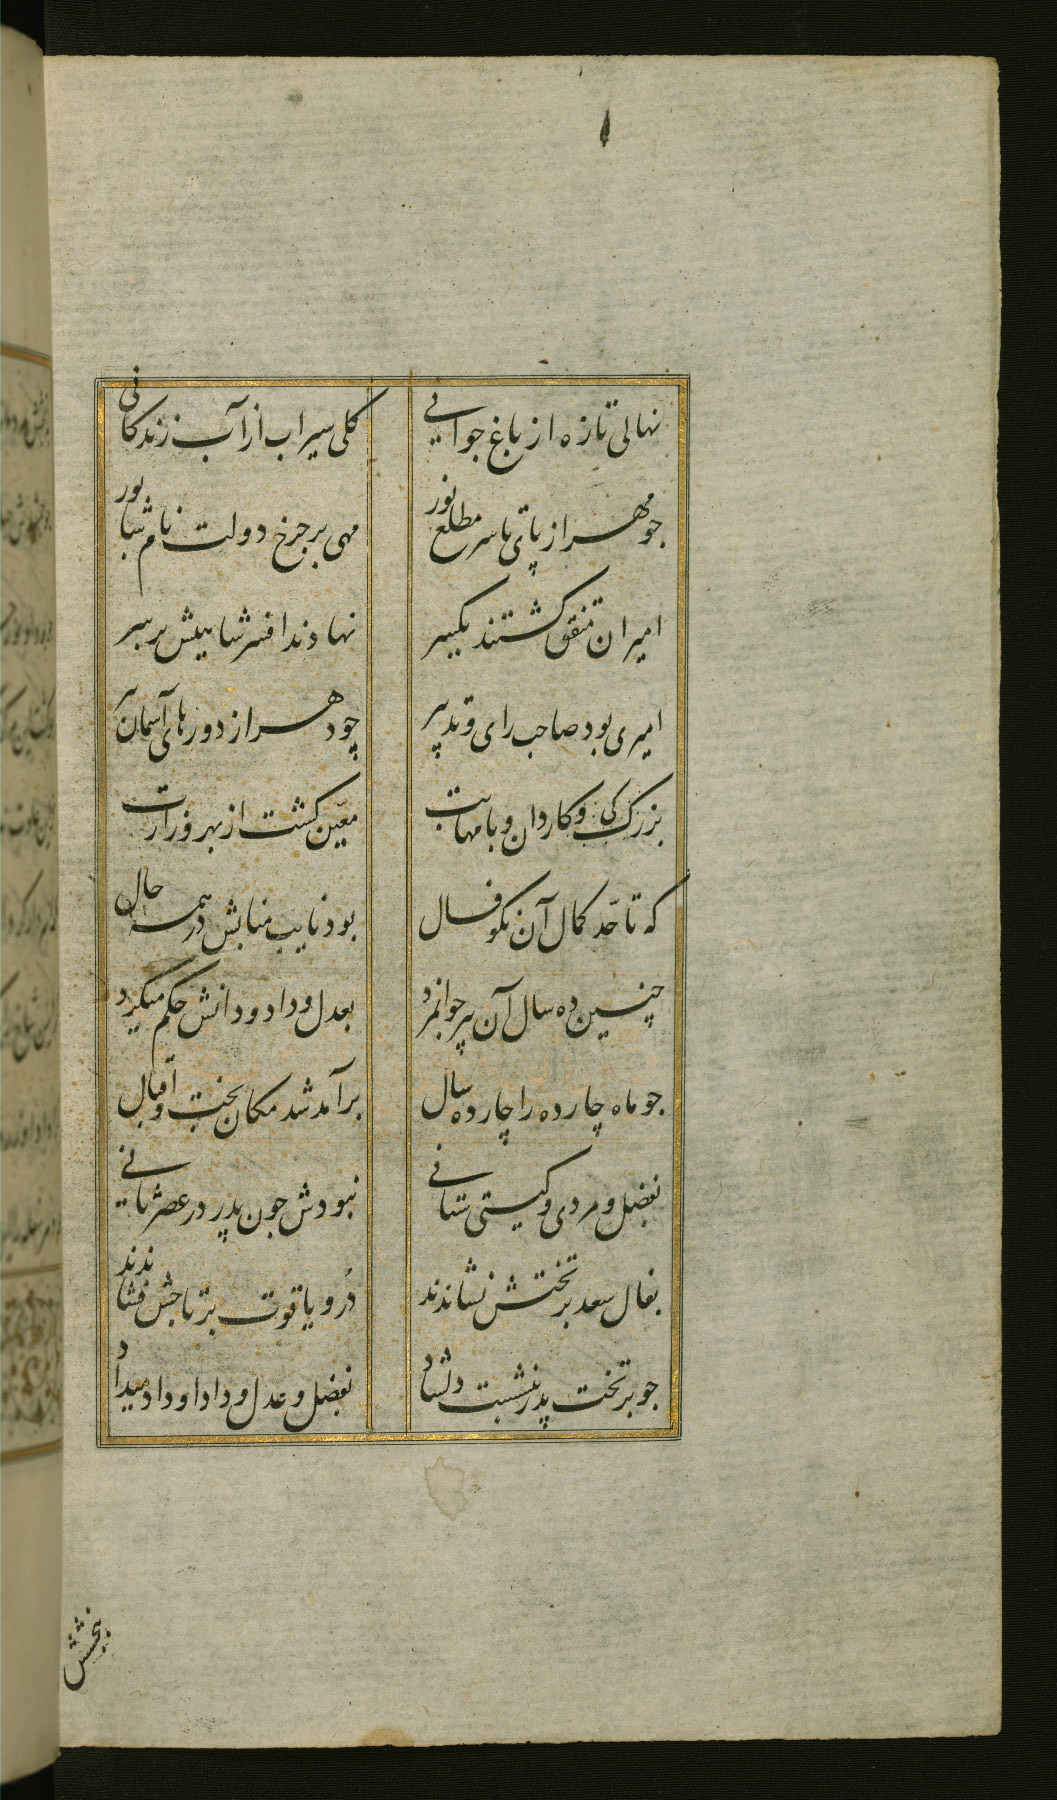 نهالی تازه از باغ جوانی
کلی سیراب از آب زندکانی
جو مهر از پای تا سر مطلع نور
مهی بر جرخ دولت نام شاپور
امیران متفق کشتند یکسر
نهادند افسر شاهیش بر سر
امیری بود صاحب رای و تدبیر
چو دهر از دورهای آسمان پیر
بزرک کی و کاردان و با مهابت
معین کشت از بهر وزارت
که تا حد کمال آن نکو فال
بود نایب منابش در همه حال
چنین ده سال آن پیر جوانمرد
بعدل و داد و دانش حکم میکرد
جو ماه چارده را چارده سال
برآمد شد مکان بخت و اقبال
بفضل و مردی و کیتی ستانی
نبودش جون پدر در عصر ثانی
بفال سعد بر تختش نشاندند
در و یاقوت بر تاجش فشاندند
جو بر تخت پدر بنشست دلشاد
بفضل و عدل و داد او داد میداد
ببخشش